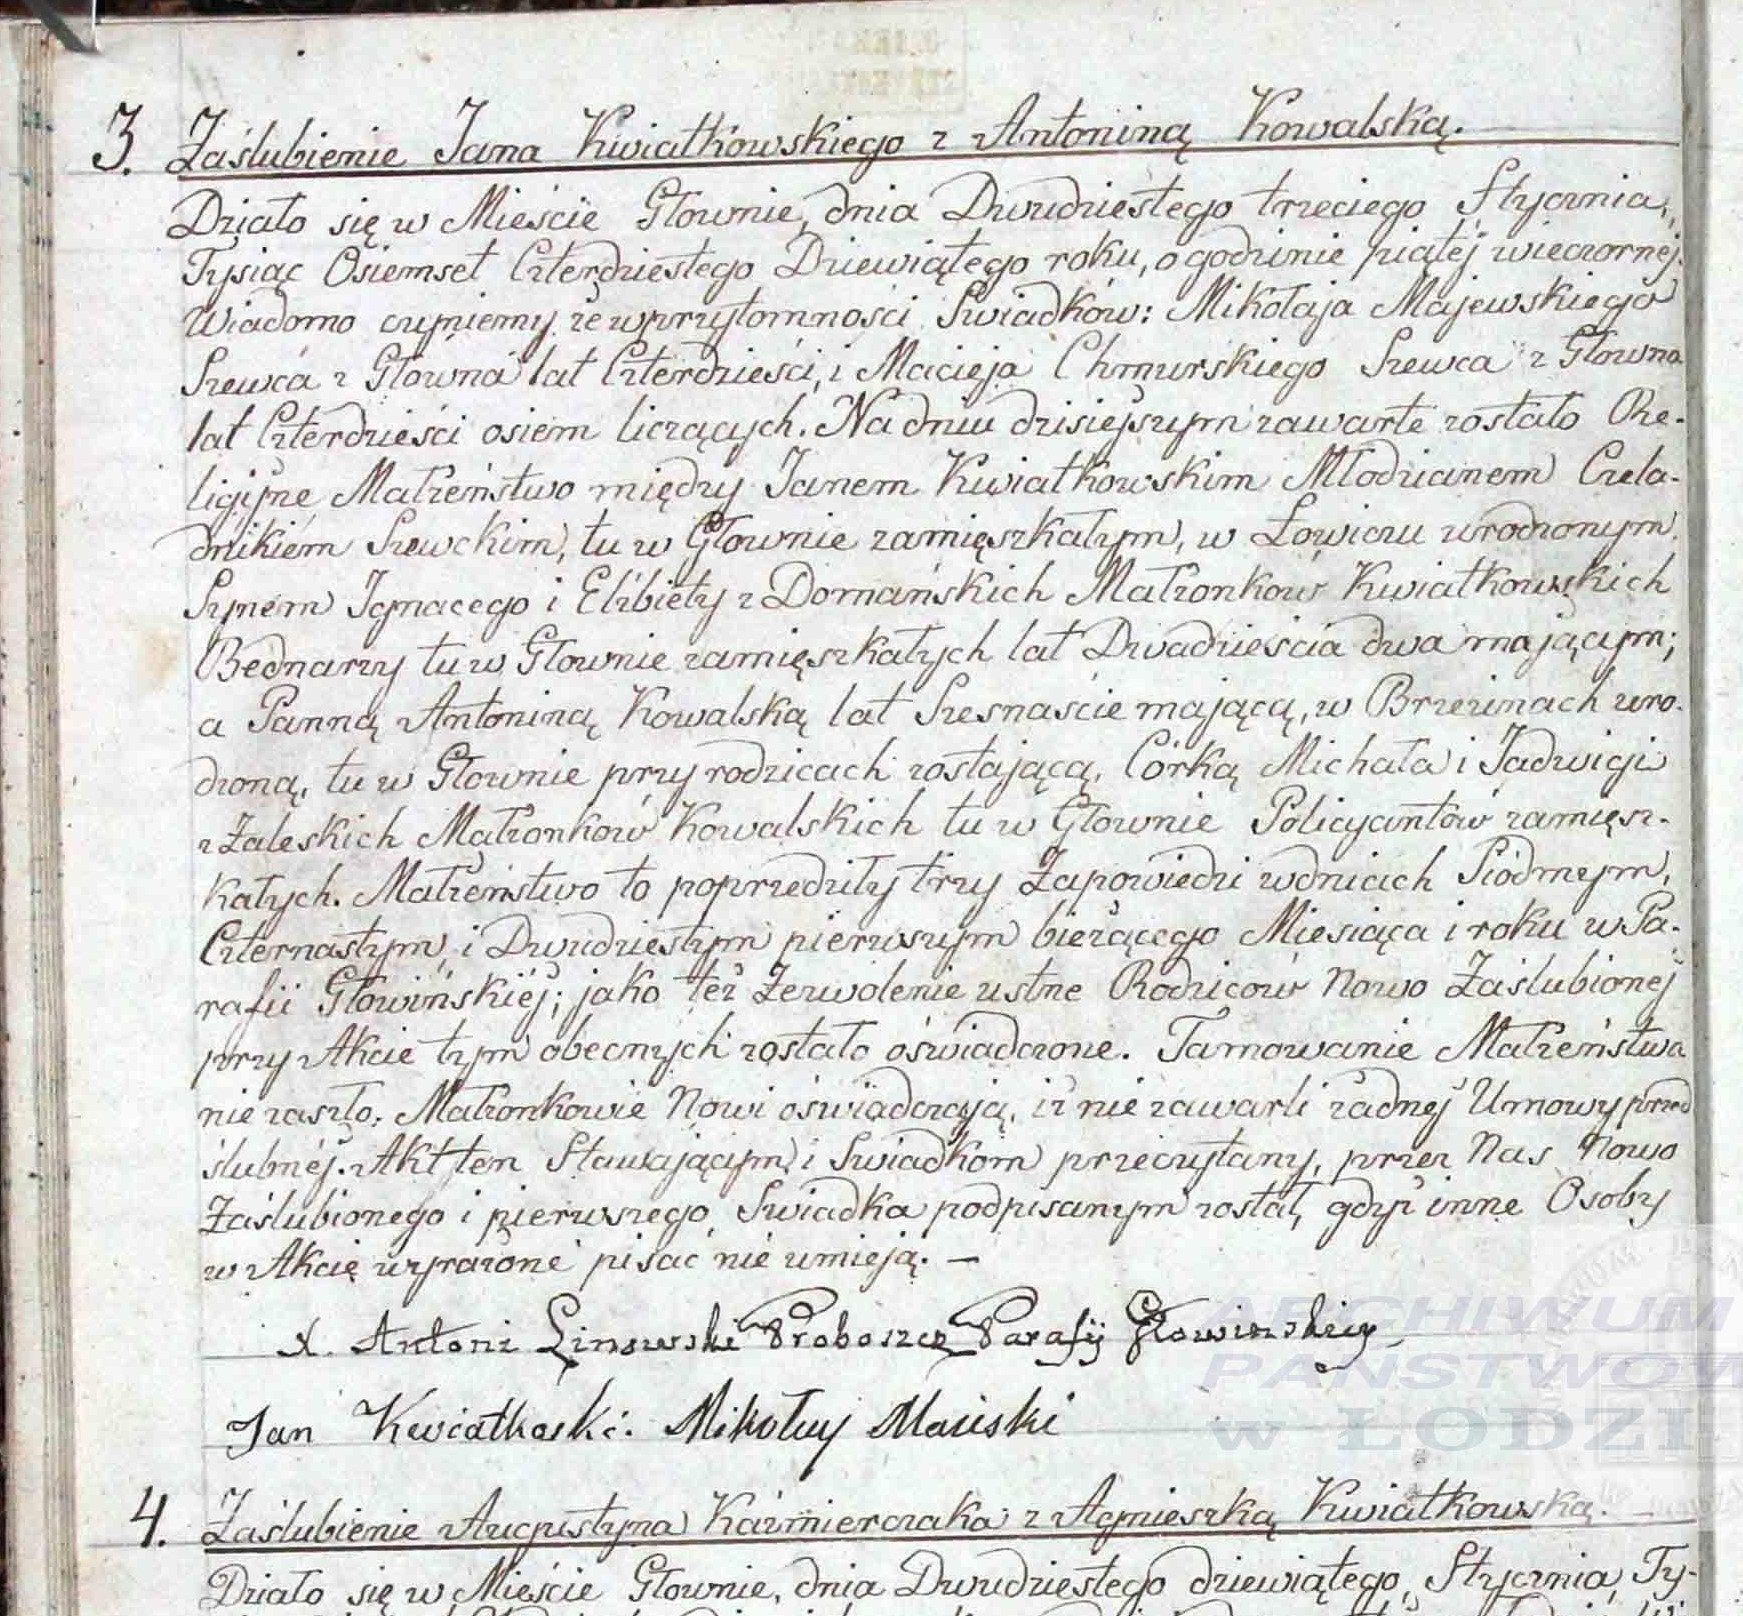 3. Zaślubienie Jana Kwiatkowskiego z Antoniną Kowalską.
Działo się w Mieście Głownie, dnia Dwudziestego trzeciego Stycznia,
Tysiąc Osiemset Czterdziestego Dziewiątego roku, o godzinie piątej wieczornej.
Wiadomo czyniemy, że w przytomności Swiadków: Mikołaja Majewskiego
Szewca z Głowna lat Czterdzieści, i Macieja Chmurskiego Szewca z Głowna
lat Czterdzieści osiem liczących. Na dniu dzisiejszym zawarte zostało Re-
ligijne Małżeństwo między Janem Kwiatkowskim Młodzianem Czela-
dnikiem Szewckim, tu w Głownie zamięszkałym, w Łowiczu urodzonym,
Synem Ignacego i Elżbiety z Domańskich Małżonków Kwiatkowskich
Bednarzy tu w Głownie zamięszkałych lat Dwadzieścia dwa mającym;
a Panną Antoniną Kowalską lat Szesnaście mającą, w Brzezinach uro-
dzoną, tu w Głownie przy rodzicach zostającą, Córką Michała i Jadwigi
z Zaleskich Małżonków Kowalskich tu w Głownie Policyantów zamięsz-
kałych. Małżeństwo to poprzedziły trzy Zapowiedzi w dniach Siódmym,
Czternastym, i Dwudziestym pierwszym bieżącego Miesiąca i roku w Pa-
rafii Głowińskiéj; jako też Zezwolenie ustne Rodziców Nowo Zaślubionej
przy Akcie tym obecnych zostało oświadczone. Tamowanie Małżeństwa
nie zaszło. Małżonkowie Nowi oświadczają, iż nie zawarli żadnej Umowy przed
ślubnéj. Akt ten Stawającym i Swiadkom przeczytany, przez Nas Nowo
Zaślubionego i pierwszego Swiadka podpisanym został, gdyż inne Osoby
w Akcie wyrażone pisać nie umieją. —
X. Antoni Linowski Proboszcz Parafij Głowinskiey
Jan Kwiatkoski. Mikołuy Maiski
4. Zaślubienie Augustyna Kaźmierczaka z Agnieszką Kwiatkowską. —
Działo się w Mieście Głownie, dnia Dwudziestego dziewiątego, Stycznia, Ty-
ARCHIWUM
PAŃSTWOW
w ŁODZI